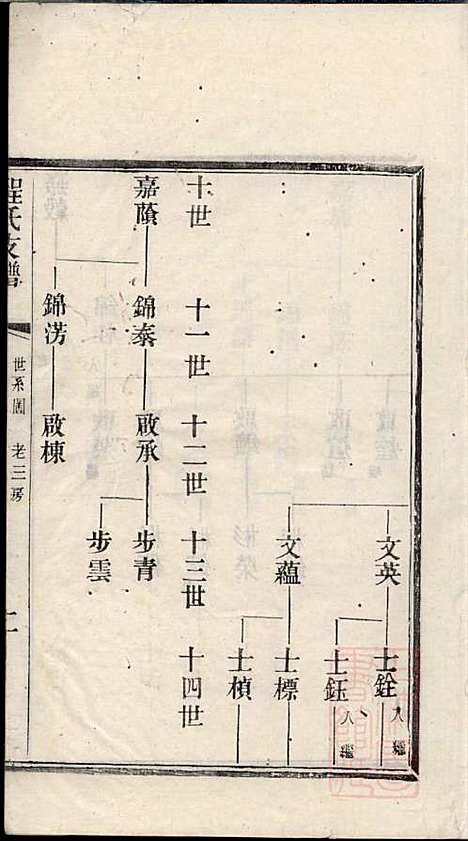 文英
士銓 入繼
士鈺 入繼
文蘊
士標
士楨
十世
十一世
十二世
十三世
十四世
嘉蔭
錦泰
啟承
步青
步雲
錦涝
啟棟
程氏支譜
世系圖 老三房
二